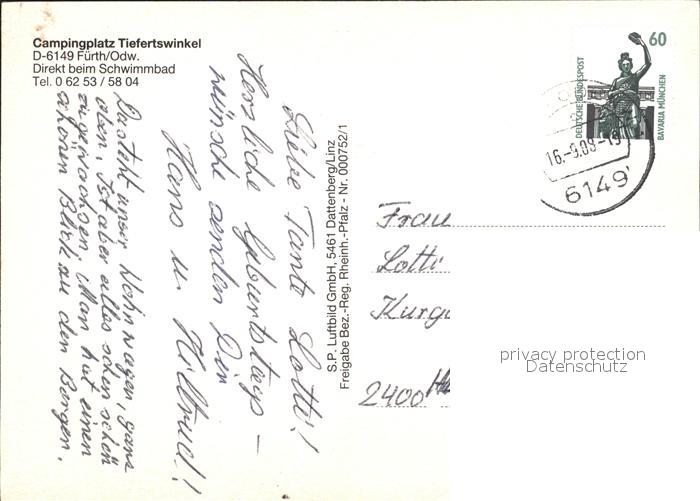 Campingplatz Tiefertswinkel
D-6149 Fürth/Odw.
Direkt beim Schwimmbad
Tel. 0 62 53 / 58 04
Liebe Tante Lotti!
Herzliche Geburtstags-
wünsche senden Dir
Hans u. Hiltrud!
Da steht unser Wohnwagen, ganz
oben. Ist aber alles schon schön
zugewachsen. Man hat einen
schönen Blick zu den Bergen.
S.P. Luftbild GmbH, 5461 Dattenberg/Linz
Freigabe Bez.-Reg. Rheinh.-Pfalz - Nr. 000752/1
DEUTSCHE BUNDESPOST
60
BAVARIA MÜNCHEN
6149
Frau
Lotti
2400
privacy protection
Datenschutz